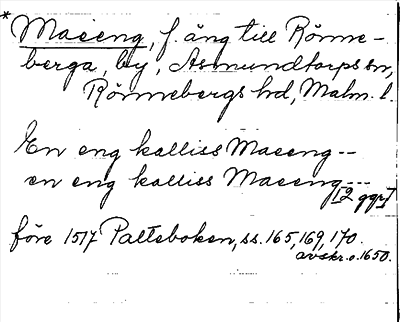 *Maeeng, f. äng till Rönne-
berga, by, Asmundtorps sn,
Rönnebergs hd, Malm. l.
En eng kalliss Maeeng --
en eng kalliss Maeeng ---
[2 ggr]
före 1517 Palteboken, ss. 165, 169, 170.
avskr. o. 1650.